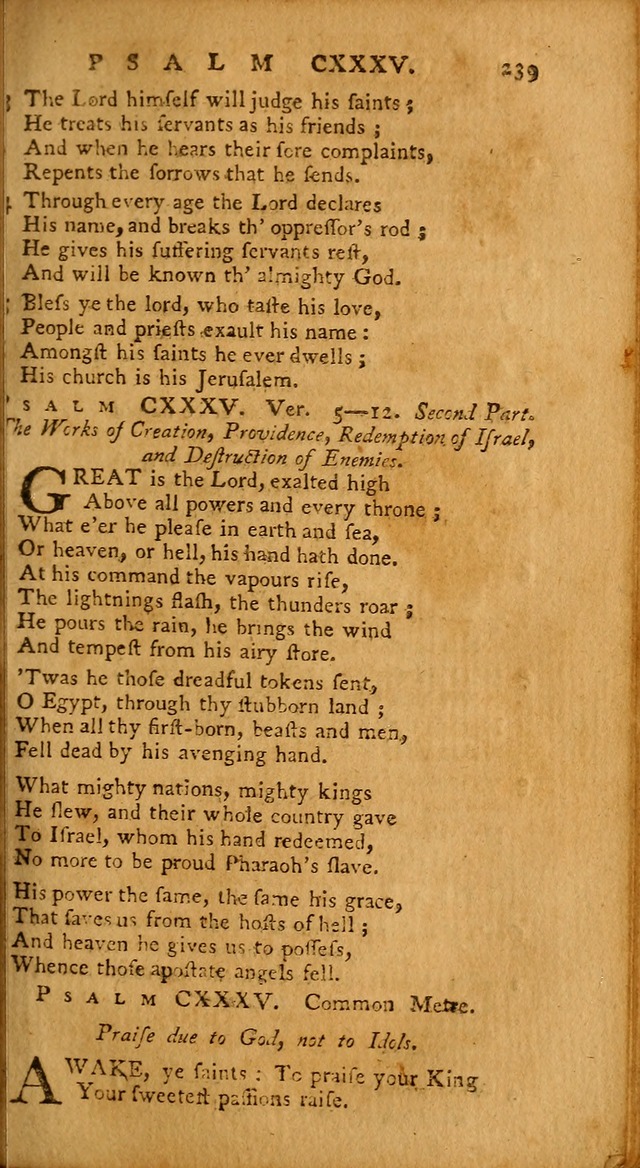 PSALM CXXXV. 239
The Lord himſelf will judge his ſaints ;
He treats his ſervants as his friends ;
And when he hears their ſore complaints,
Repents the ſorrows that he ſends.
Through every age the Lord declares
His name, and breaks th' oppreſſor's rod ;
He gives his ſuffering ſervants reſt,
And will be known th' almighty God.
Bleſs ye the lord, who taſte his love,
People and prieſts exault his name :
Amongſt his ſaints he ever dwells ;
His church is his Jeruſalem.
PSALM CXXXV. Ver. 5—12. Second Part.
The Works of Creation, Providence, Redemption of Iſrael,
and Deſtruction of Enemies.
GREAT is the Lord, exalted high
Above all powers and every throne ;
What e'er he pleaſe in earth and ſea,
Or heaven, or hell, his hand hath done.
At his command the vapours riſe,
The lightnings flaſh, the thunders roar ;
He pours the rain, he brings the wind
And tempeſt from his airy ſtore.
'Twas he thoſe dreadful tokens ſent,
O Egypt, through thy ſtubborn land ;
When all thy firſt-born, beaſts and men,
Fell dead by his avenging hand.
What mighty nations, mighty kings
He ſlew, and their whole country gave
To Iſrael, whom his hand redeemed,
No more to be proud Pharaoh's ſlave.
His power the ſame, the ſame his grace,
That ſaves us from the hoſts of hell ;
And heaven he gives us to poſſeſs,
Whence thoſe apoſtate angels fell.
PSALM CXXXV. Common Metre.
Praiſe due to God, not to Idols.
AWAKE, ye ſaints : To praiſe your King
Your ſweeteſt paſſions raiſe.